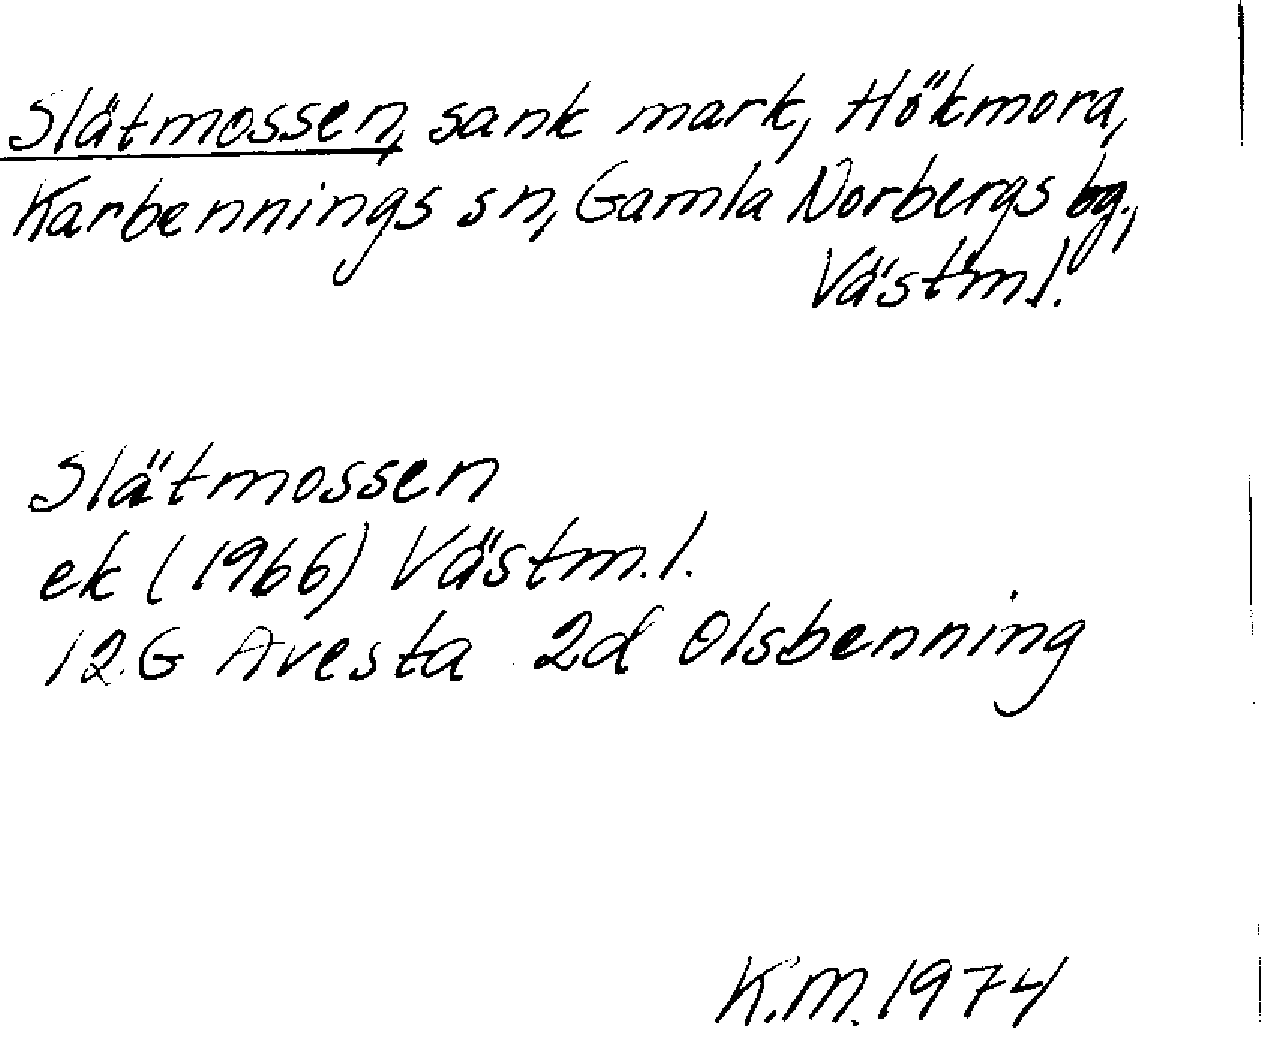 Slätmossen, sank mark, Hökmora,
Karbennings sn, Gamla Norbergs bg.,
Västm.l.
Slätmossen
ek (1966) Västm.l.
12.G Avesta 2d Olsbenning
K.M. 1974